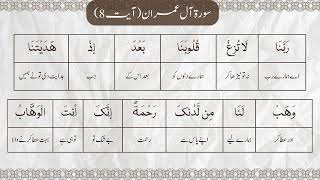 سورۃ آل عمران (آیت 8)
رَبَّنَا لَا تُزِغْ قُلُوبَنَا بَعْدَ إِذْ هَدَيْتَنَا
اے ہمارے رب نہ تو ٹیڑھا کر ہمارے دلوں کو اس کے بعد جب ہدایت دی تو نے ہمیں
وَهَبْ لَنَا مِن لَّدُنكَ رَحْمَةً إِنَّكَ أَنتَ الْوَهَّابُ
اور عطا کر ہمارے لیے اپنے پاس سے رحمت بے شک تو تو ہی ہے بہت عطا کرنے والا